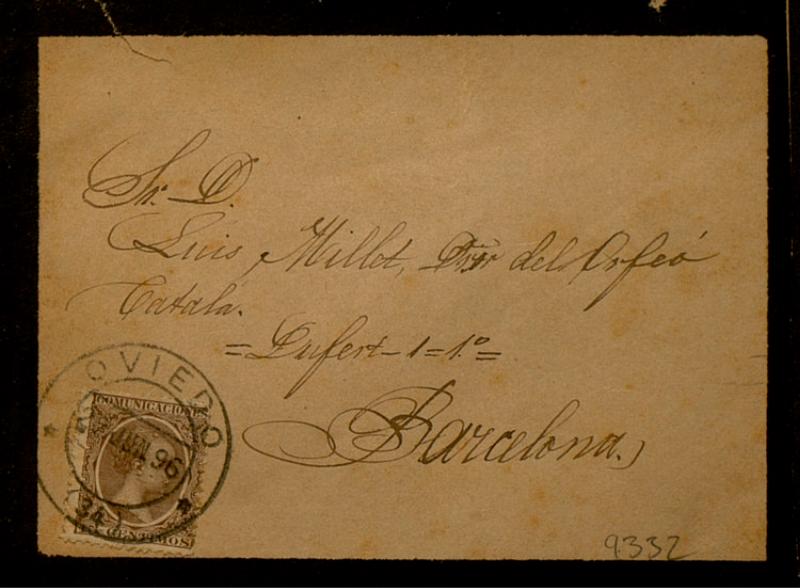 Sr. D.
Luis Millet, Dtor del Orfeó
Catalá.
= Dufort - 1 = 1.º =
Barcelona.
OVIEDO
COMUNICACIONES
JUN 96
CENTIMOS
9332